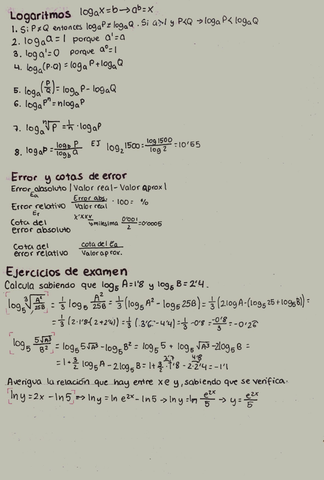 Logaritmos log_a x = b → a^b = x
1. Si P≠Q entonces log_a P ≠ log_a Q. Si a>1 y P<Q → log_a P < log_a Q
2. log_a a = 1 porque a¹ = a
3. log_a 1 = 0 porque a⁰ = 1
4. log_a (P·Q) = log_a P + log_a Q
5. log_a (P/Q) = log_a P - log_a Q
6. log_a Pⁿ = n log_a P
7. log_a ⁿ√P = 1/n · log_a P
8. log_a P = log_b P / log_b a EJ log₂ 1500 = log 1500 / log 2 = 10'55
Error y cotas de error
Error absoluto | Valor real - Valor aprox |
E_a
Error relativo Error abs. / Valor real · 100 = %
E_r
Cota del error absoluto 0'001 / 2 = 0'0005
Cota del error relativo cota del E_a / Valor aprox.
Ejercicios de examen
Calcula sabiendo que log₅ A = 1'8 y log₅ B = 2'4.
log₅ ³√(A²/25B) = 1/3 log₅ A²/25B = 1/3 (log₅ A² - log₅ 25B) = 1/3 (2log A - (log₅ 25 + log₅ B)) =
= 1/3 (2·1'8 - (2+2'4)) = 1/3 (3'6 - 4'4) = 1/3 · -0'8 = -0'8/3 = -0'26
log₅ 5√A³/B² = log₅ 5√A³ - log₅ B² = log₅ 5 + log₅ √A³ - 2log₅ B =
= 1 + 3/2 log₅ A - 2log₅ B = 1 + 3/2 · 1'8 - 2·2'4 = -1'1
2'7 4'8
Averigua la relación que hay entre x e y, sabiendo que se verifica.
ln y = 2x - ln 5 → ln y = ln e^2x - ln 5 → ln y = ln e^2x/5 → y = e^2x/5